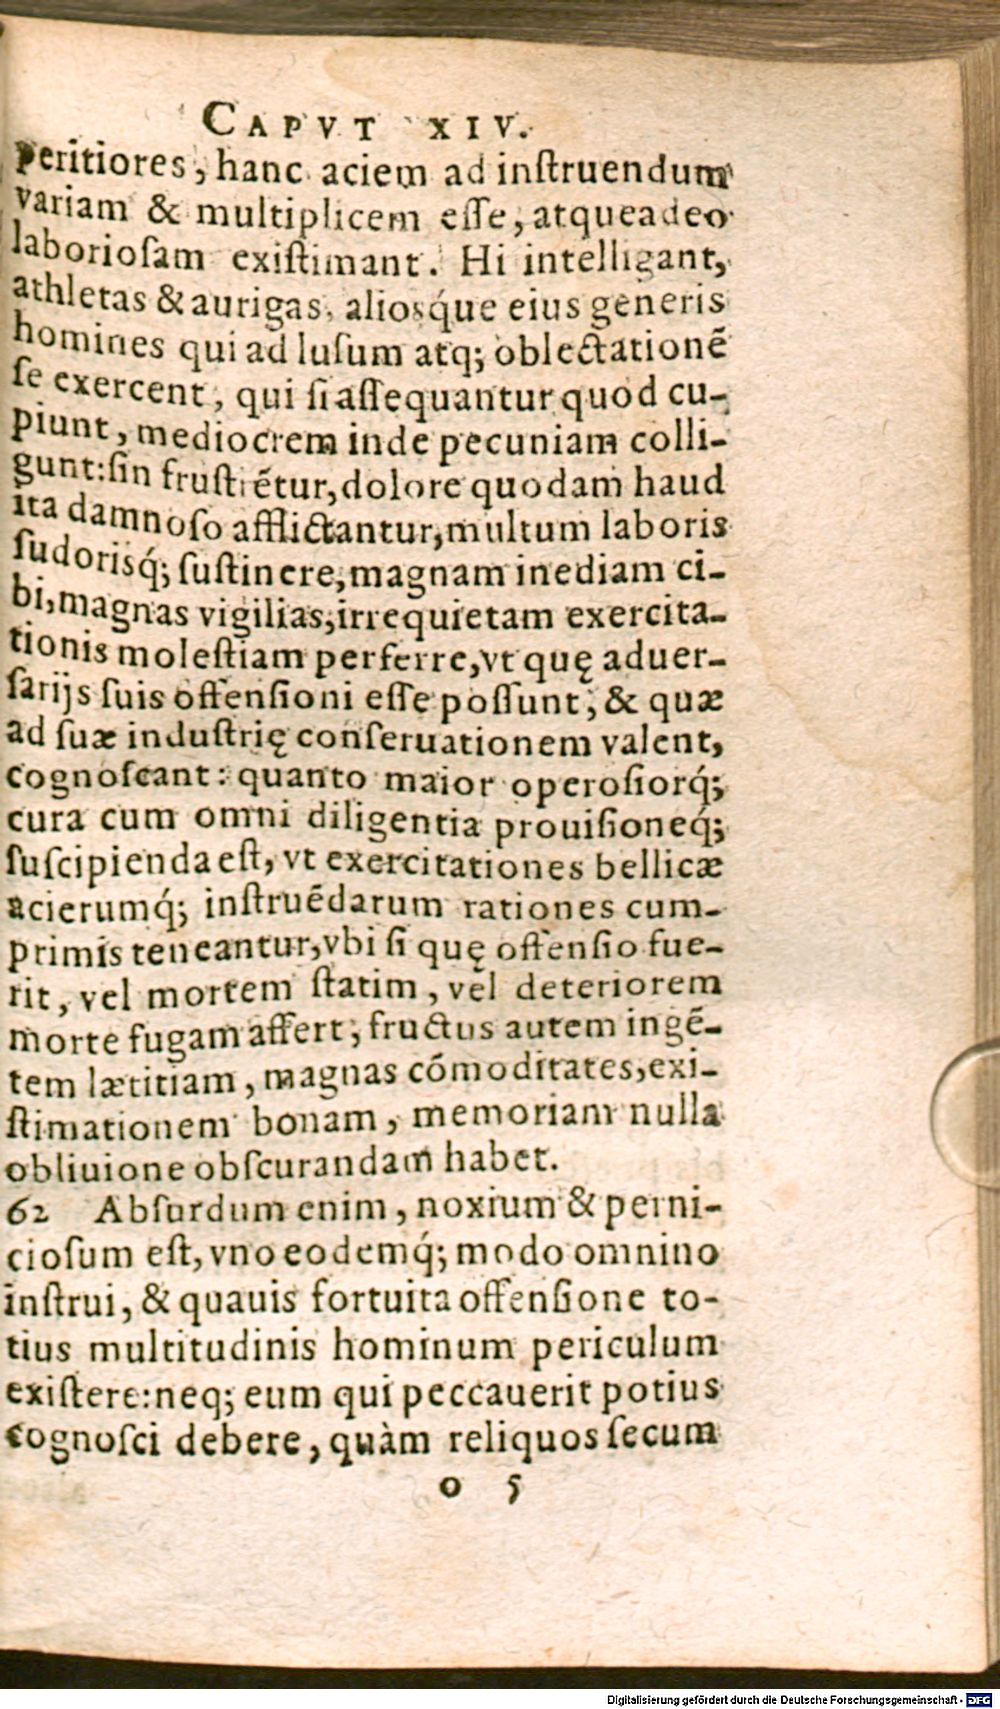 CAPVT XIV.
peritiores, hanc aciem ad inſtruendum
variam & multiplicem eſſe, atqueadeo
laborioſam exiſtimant. Hi intelligant,
athletas & aurigas, alioſq́ue eius generis
homines qui ad luſum atq; oblectationẽ
ſe exercent, qui ſi aſſequantur quod cu-
piunt, mediocrem inde pecuniam colli-
gunt: ſin fruſtrẽtur, dolore quodam haud
ita damnoſo afflictantur, multum laboris
ſudorisq́; ſuſtinere, magnam inediam ci-
bi, magnas vigilias, irrequietam exercita-
tionis moleſtiam perferre, vt quę aduer-
ſarijs ſuis offenſioni eſſe poſſunt, & quæ
ad ſuæ induſtrię conſeruationem valent,
cognoſcant: quanto maior operoſiorq́;
cura cum omni diligentia prouiſioneq́;
ſuſcipienda eſt, vt exercitationes bellicæ
acierumq́; inſtruẽdarum rationes cum-
primis teneantur, vbi ſi quę offenſio fue-
rit, vel mortem ſtatim, vel deteriorem
morte fugam affert, fructus autem ingẽ-
tem lætitiam, magnas cõmoditates, exi-
ſtimationem bonam, memoriam nulla
obliuione obſcurandam habet.
62 Abſurdum enim, noxium & perni-
cioſum eſt, vno eodemq́; modo omnino
inſtrui, & quauis fortuita offenſione to-
tius multitudinis hominum periculum
exiſtere: neq; eum qui peccauerit potius
cognoſci debere, quàm reliquos ſecum
o 5
Digitalisierung gefördert durch die Deutsche Forschungsgemeinschaft - DFG